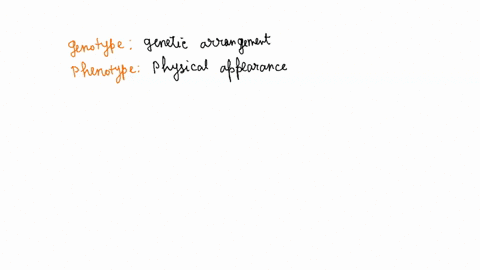 genotype: genetic arrangement
Phenotype: Physical appearance